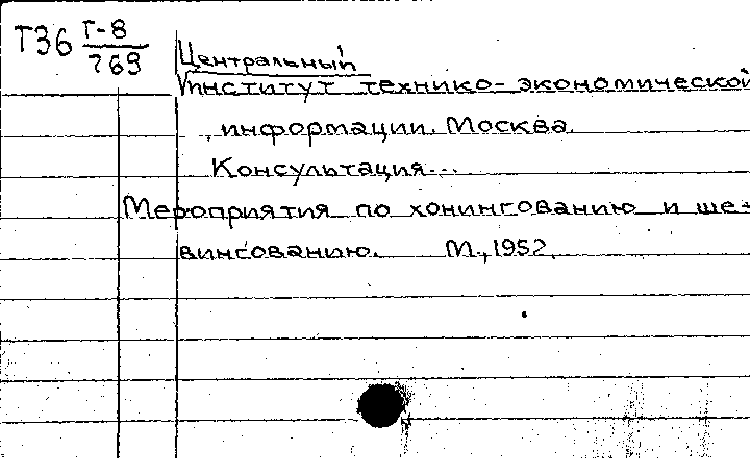 Т36 Г-8
769
Центральный
институт технико-экономической
информации. Москва.
Консультация...
Мероприятия по хонингованию и ше-
вингованию. М., 1952.